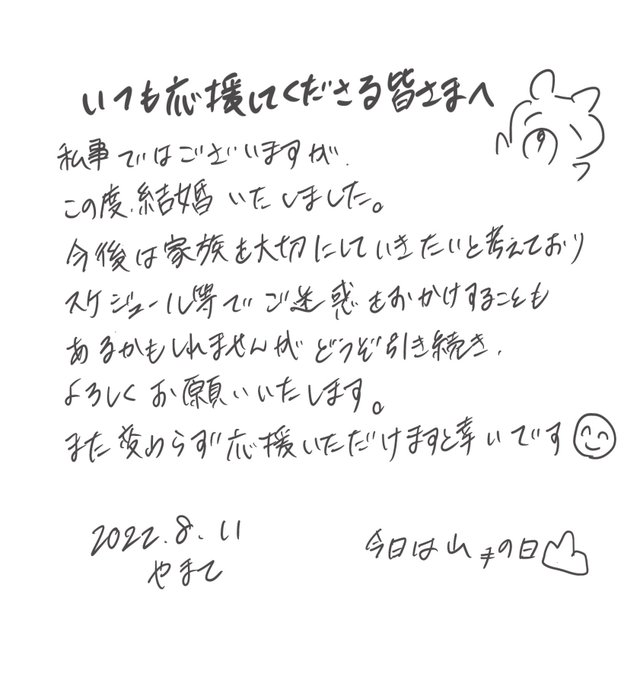 いつも応援してくださる皆さまへ
私事ではございますが、
この度、結婚いたしました。
今後は家族を大切にしていきたいと考えており
スケジュール等でご迷惑をおかけすることも
あるかもしれませんがどうぞ引き続き、
よろしくお願いいたします。
また変わらず応援いただけますと幸いです
2022.8.11
やまて
今日は山手の日